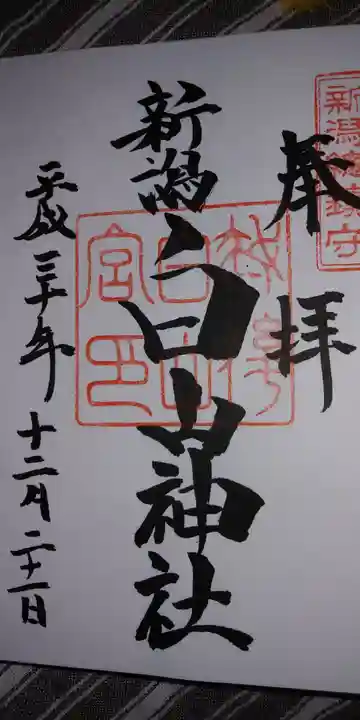 奉拝
新潟総鎮守
新潟白山神社
平成三十年十二月二十一日